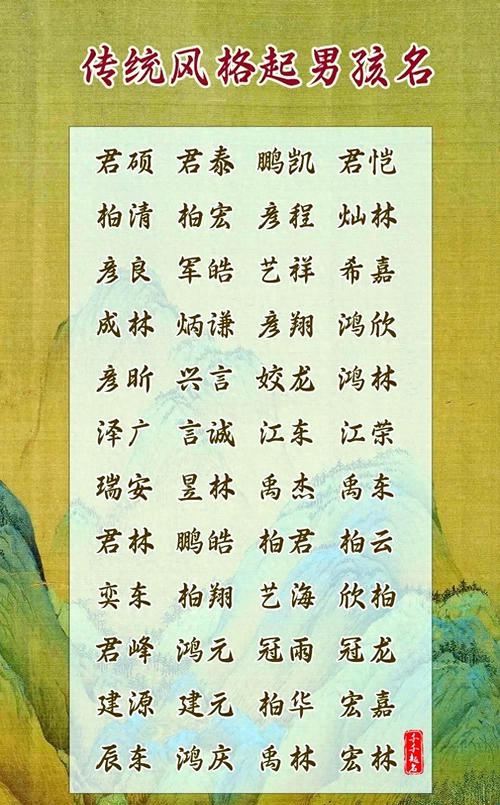 传统风格起男孩名
君硕 君泰 鹏凯 君恺
柏清 柏宏 彦程 灿林
彦良 军皓 艺祥 希嘉
成林 炳谦 彦翔 鸿欣
彦昕 兴言 姣龙 鸿林
泽广 言诚 江东 江荣
瑞安 昱林 禹杰 禹东
君林 鹏皓 柏君 柏云
奕东 柏翔 艺海 欣柏
君峰 鸿元 冠雨 冠龙
建源 建元 柏华 宏嘉
辰东 鸿庆 禹林 宏林
千千起名